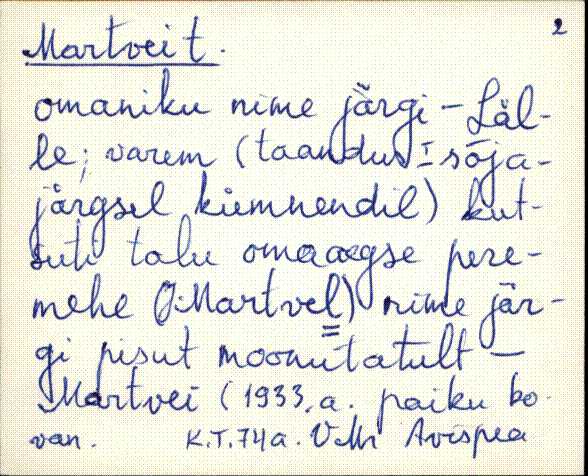 2
Martveit.
omaniku nime järgi - Läl-
le; varem (taandus I sõja-
järgsel kümnendil) kut-
suti talu omaaegse pere-
mehe (J. Martvel) nime jär-
gi pisut moonutatult -
Martvei (1933. a. paiku ko-
van. K.T. 74 a. VMr Avispea